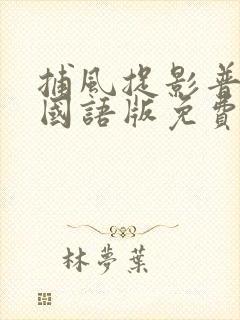 捕風捉影普
國語版免費
林夢葉